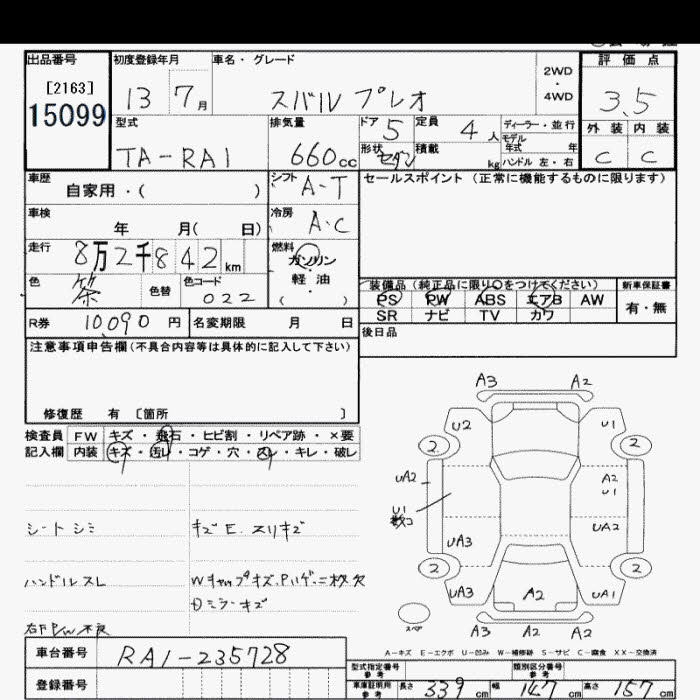 出品番号 初度登録年月 車名・グレード 評価点
[2163] 2WD
15099 13 7月 スバル プレオ 4WD 3.5
型式 排気量 ドア 5 定員 4人 ディーラー・並行 外装 内装
モデル年式 年
TA-RA1 660cc 形状 セダン 積載 kg ハンドル 左・右 C C
車歴 自家用・( ) シフト A-T セールスポイント (正常に機能するものに限ります)
車検 年 月( 日) 冷房 A.C
走行 8万2千842km 燃料 ガソリン
軽油
( )
色 茶 色替 色コード 022 装備品 (純正品に限り○をつけてください) 新車保証書
PS PW ABS エアB AW 有・無
SR ナビ TV カワ
R券 10,090 円 名変期限 月 日 後日品
注意事項申告欄 (不具合内容等は具体的に記入して下さい)
修復歴 有 〔箇所 〕
検査員 FW キズ・飛石・ヒビ割・リペア跡・×要
記入欄 内装 キズ・汚レ・コゲ・穴・スレ・キレ・破レ
シート シミ キズE. スリキズ
ハンドル スレ
ミラーキズ
右F P/W 不良
A3 A2
U2 U1
2 2
UA2 A2
U1 U1
UA3 UA2
2 2
UA3 A2 UA1
スペア A3 A2 A2
A-キズ E-エクボ U-凹み W-補修跡 S-サビ C-腐食 XX-交換済
車台番号 RA1-235728
型式指定番号 参考 類別区分番号 参考
登録番号 車庫証明用 参考 長さ 339cm 幅 147cm 高さ 157cm